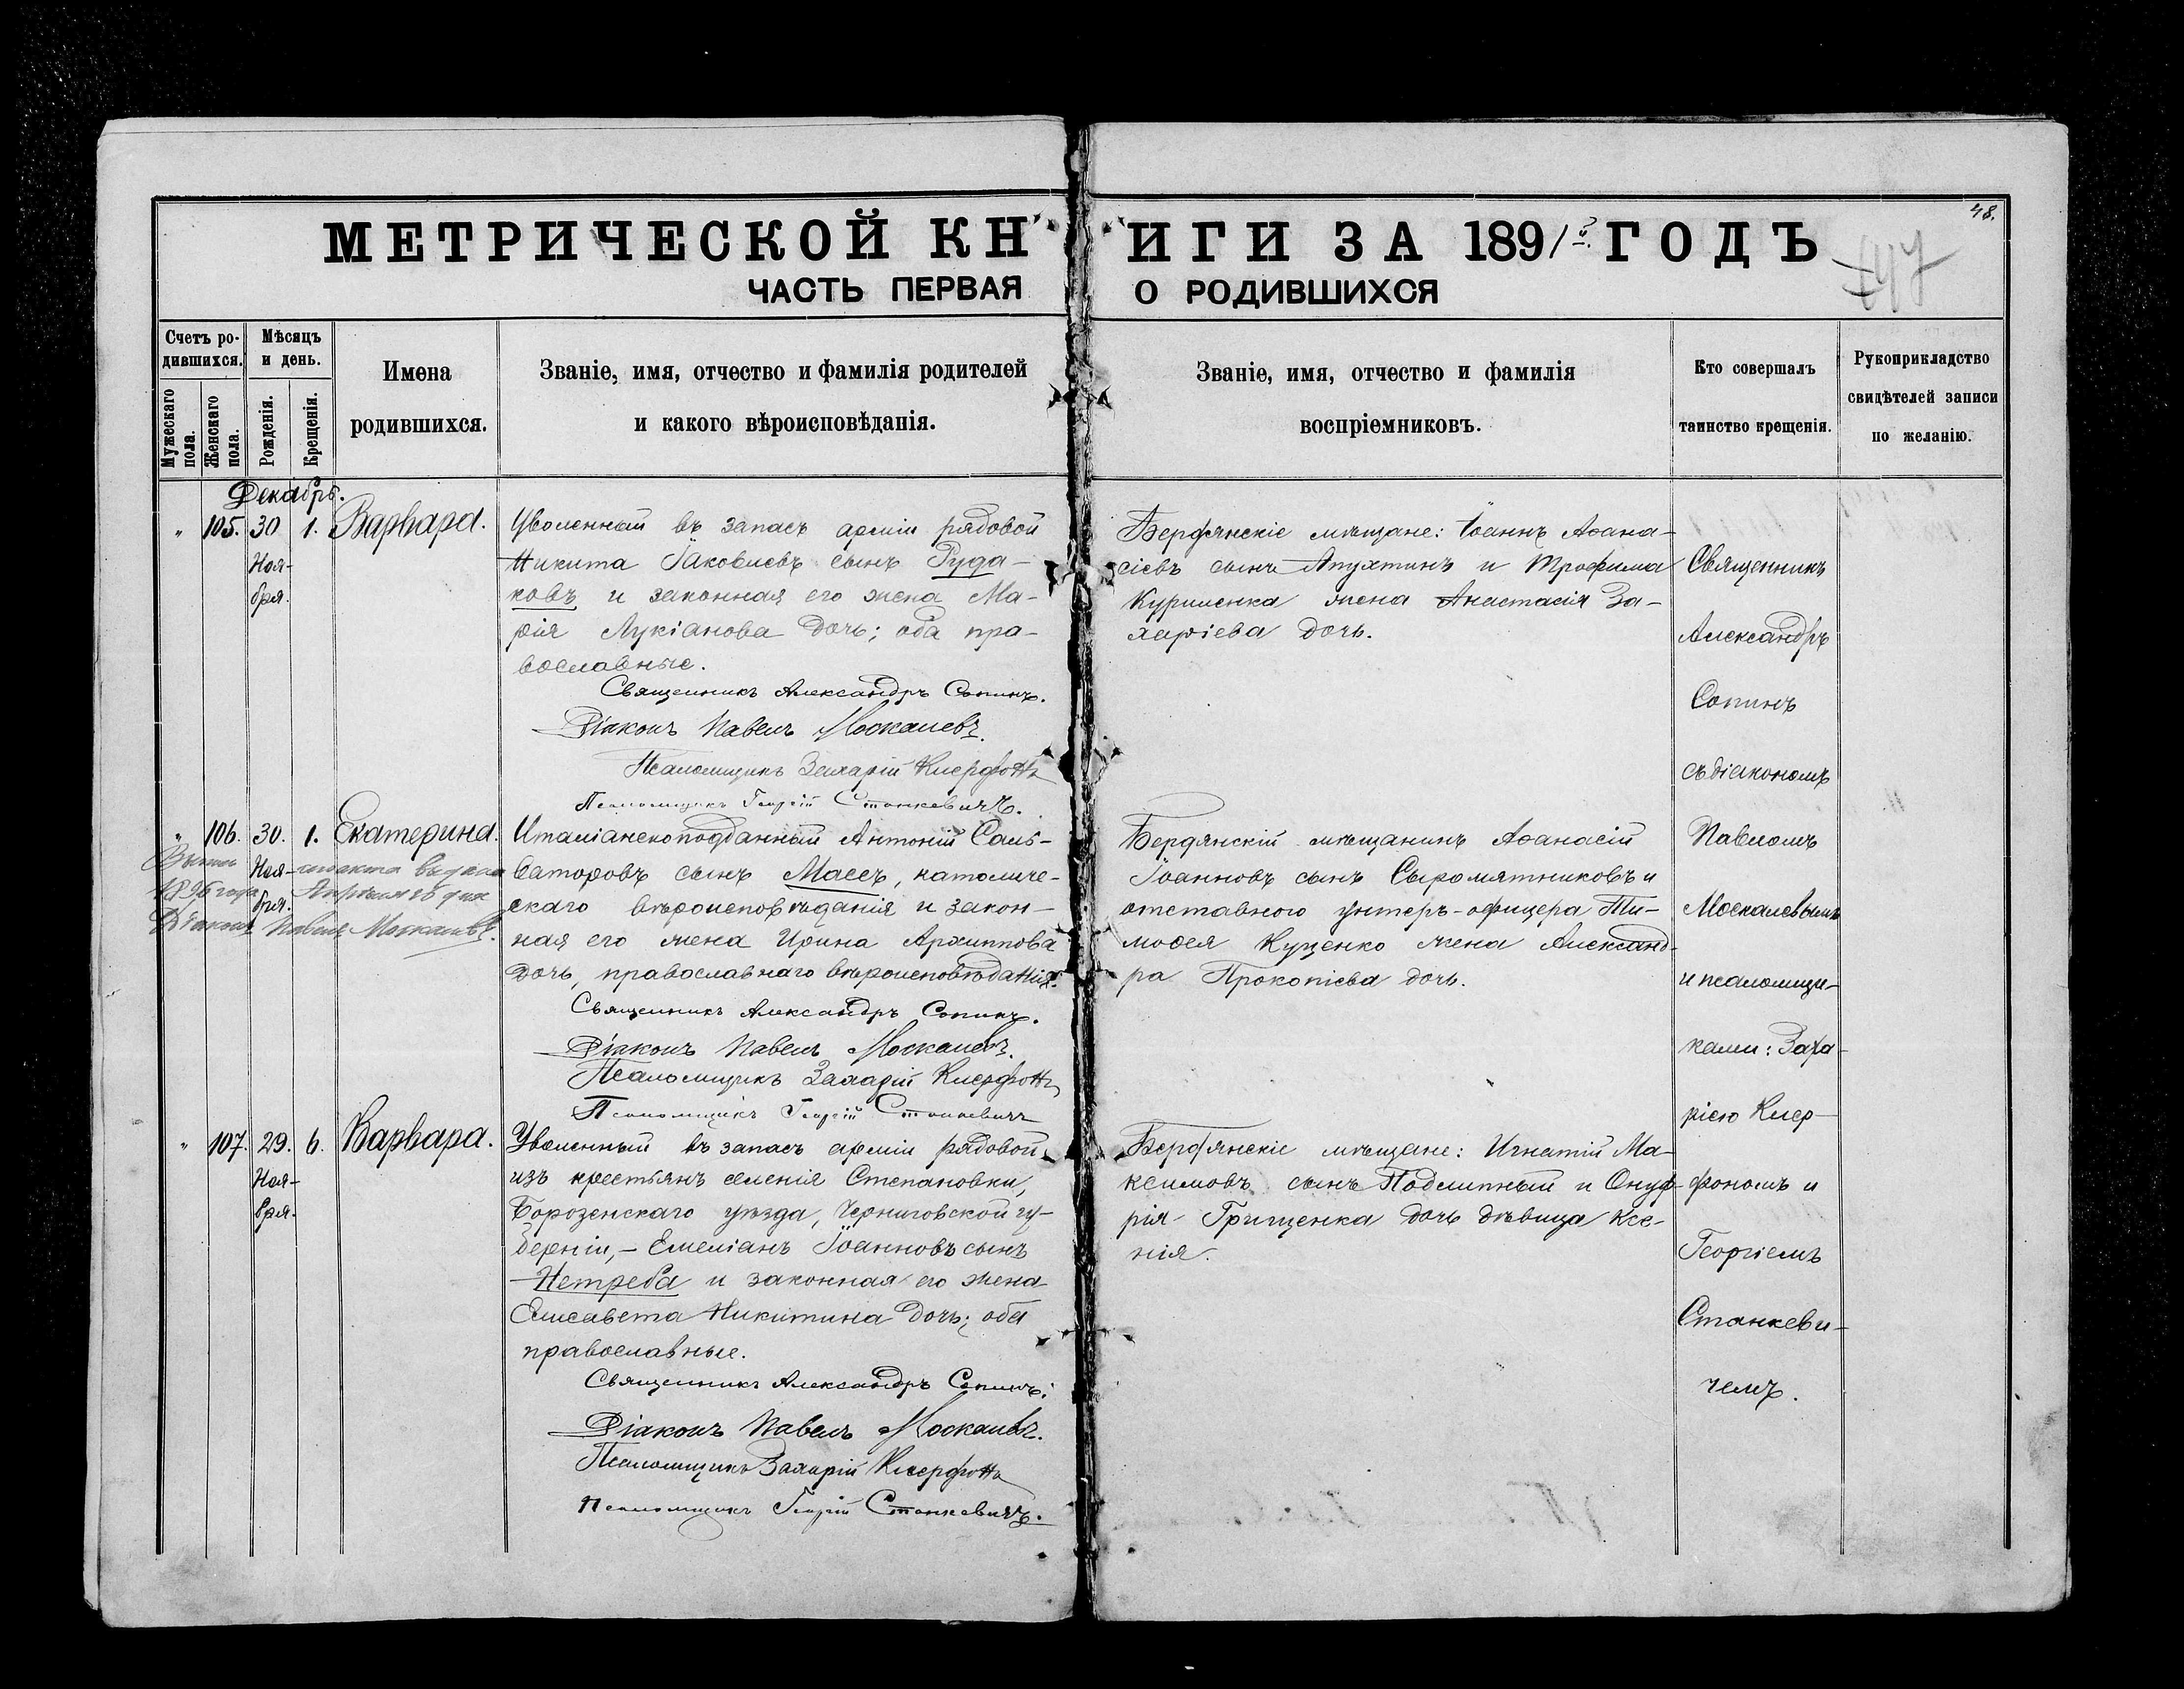 48.
МЕТРИЧЕСКОЙ КНИГИ ЗА 1891 й ГОДЪ
ЧАСТЬ ПЕРВАЯ О РОДИВШИХСЯ
Счетъ ро-
дившихся.
Мужескаго пола.
Женскаго пола.
Мѣсяцъ
и день.
Рожденія.
Крещенія.
Имена
родившихся.
Званіе, имя, отчество и фамилія родителей
и какого вѣроисповѣданія.
Званіе, имя, отчество и фамилія
воспріемниковъ.
Кто совершалъ
таинство крещенія.
Рукоприкладство
свидѣтелей записи
по желанію.
Декабрь.
" 105. 30 1. Варвара.
Ноя-
бря.
Уволенный въ запасъ арміи рядовой
Никита Іаковлевъ сынъ Руда-
ковъ и законная его жена Ма-
рія Лукіанова дочь; оба пра-
вославные.
Священникъ Александръ Сопинъ.
Діаконъ Павелъ Москалевъ.
Псаломщикъ Захарій Ксерфонъ
Псаломщикъ Георгій Станкевичъ.
Бердянскіе мѣщане: Іоаннъ Аѳана-
сіевъ сынъ Апухтинъ и Трофима
Куриленка жена Анастасія За-
харіева дочь.
" 106. 30. 1. Екатерина.
Ноя-
бря.
выдана
1896 года Апрѣля
Діаконъ Павелъ Москалевъ.
Италіанскоподданный Антоній Саль-
ваторовъ сынъ Массъ, католиче-
скаго вѣроисповѣданія и закон-
ная его жена Ирина Архиппова
дочь, православнаго вѣроисповѣданія.
Священникъ Александръ Сопинъ.
Діаконъ Павелъ Москалевъ.
Псаломщикъ Захарій Ксерфонъ
Псаломщикъ Георгій Станкевичъ
Бердянскій мѣщанинъ Аѳанасій
Іоанновъ сынъ Сыромятниковъ и
отставного унтеръ-офицера Ти-
моѳея Куценко жена Александ-
ра Прокопіева дочь.
" 107. 29. 6. Варвара.
Ноя-
бря.
Уволенный въ запасъ арміи рядовой
изъ крестьянъ селенія Степановки,
Борозенскаго уѣзда, Черниговской гу-
берніи,- Емеліанъ Іоанновъ сынъ
Нетреба и законная его жена
Елисавета Никитина дочь; оба
православные.
Священникъ Александръ Сопинъ.
Діаконъ Павелъ Москалевъ.
Псаломщикъ Захарій Ксерфонъ
Псаломщикъ Георгій Станкевичъ.
Бердянскіе мѣщане: Игнатій Ма-
ксимовъ сынъ Подлипный и Онуф-
рія Грищенка дочь дѣвица Ксе-
нія.
Священникъ
Александръ
Сопинъ
съ діакономъ
Павломъ
Москалевымъ
и псаломщи-
ками: Заха-
ріею Ксер-
фономъ и
Георгіемъ
Станкеви-
чемъ.